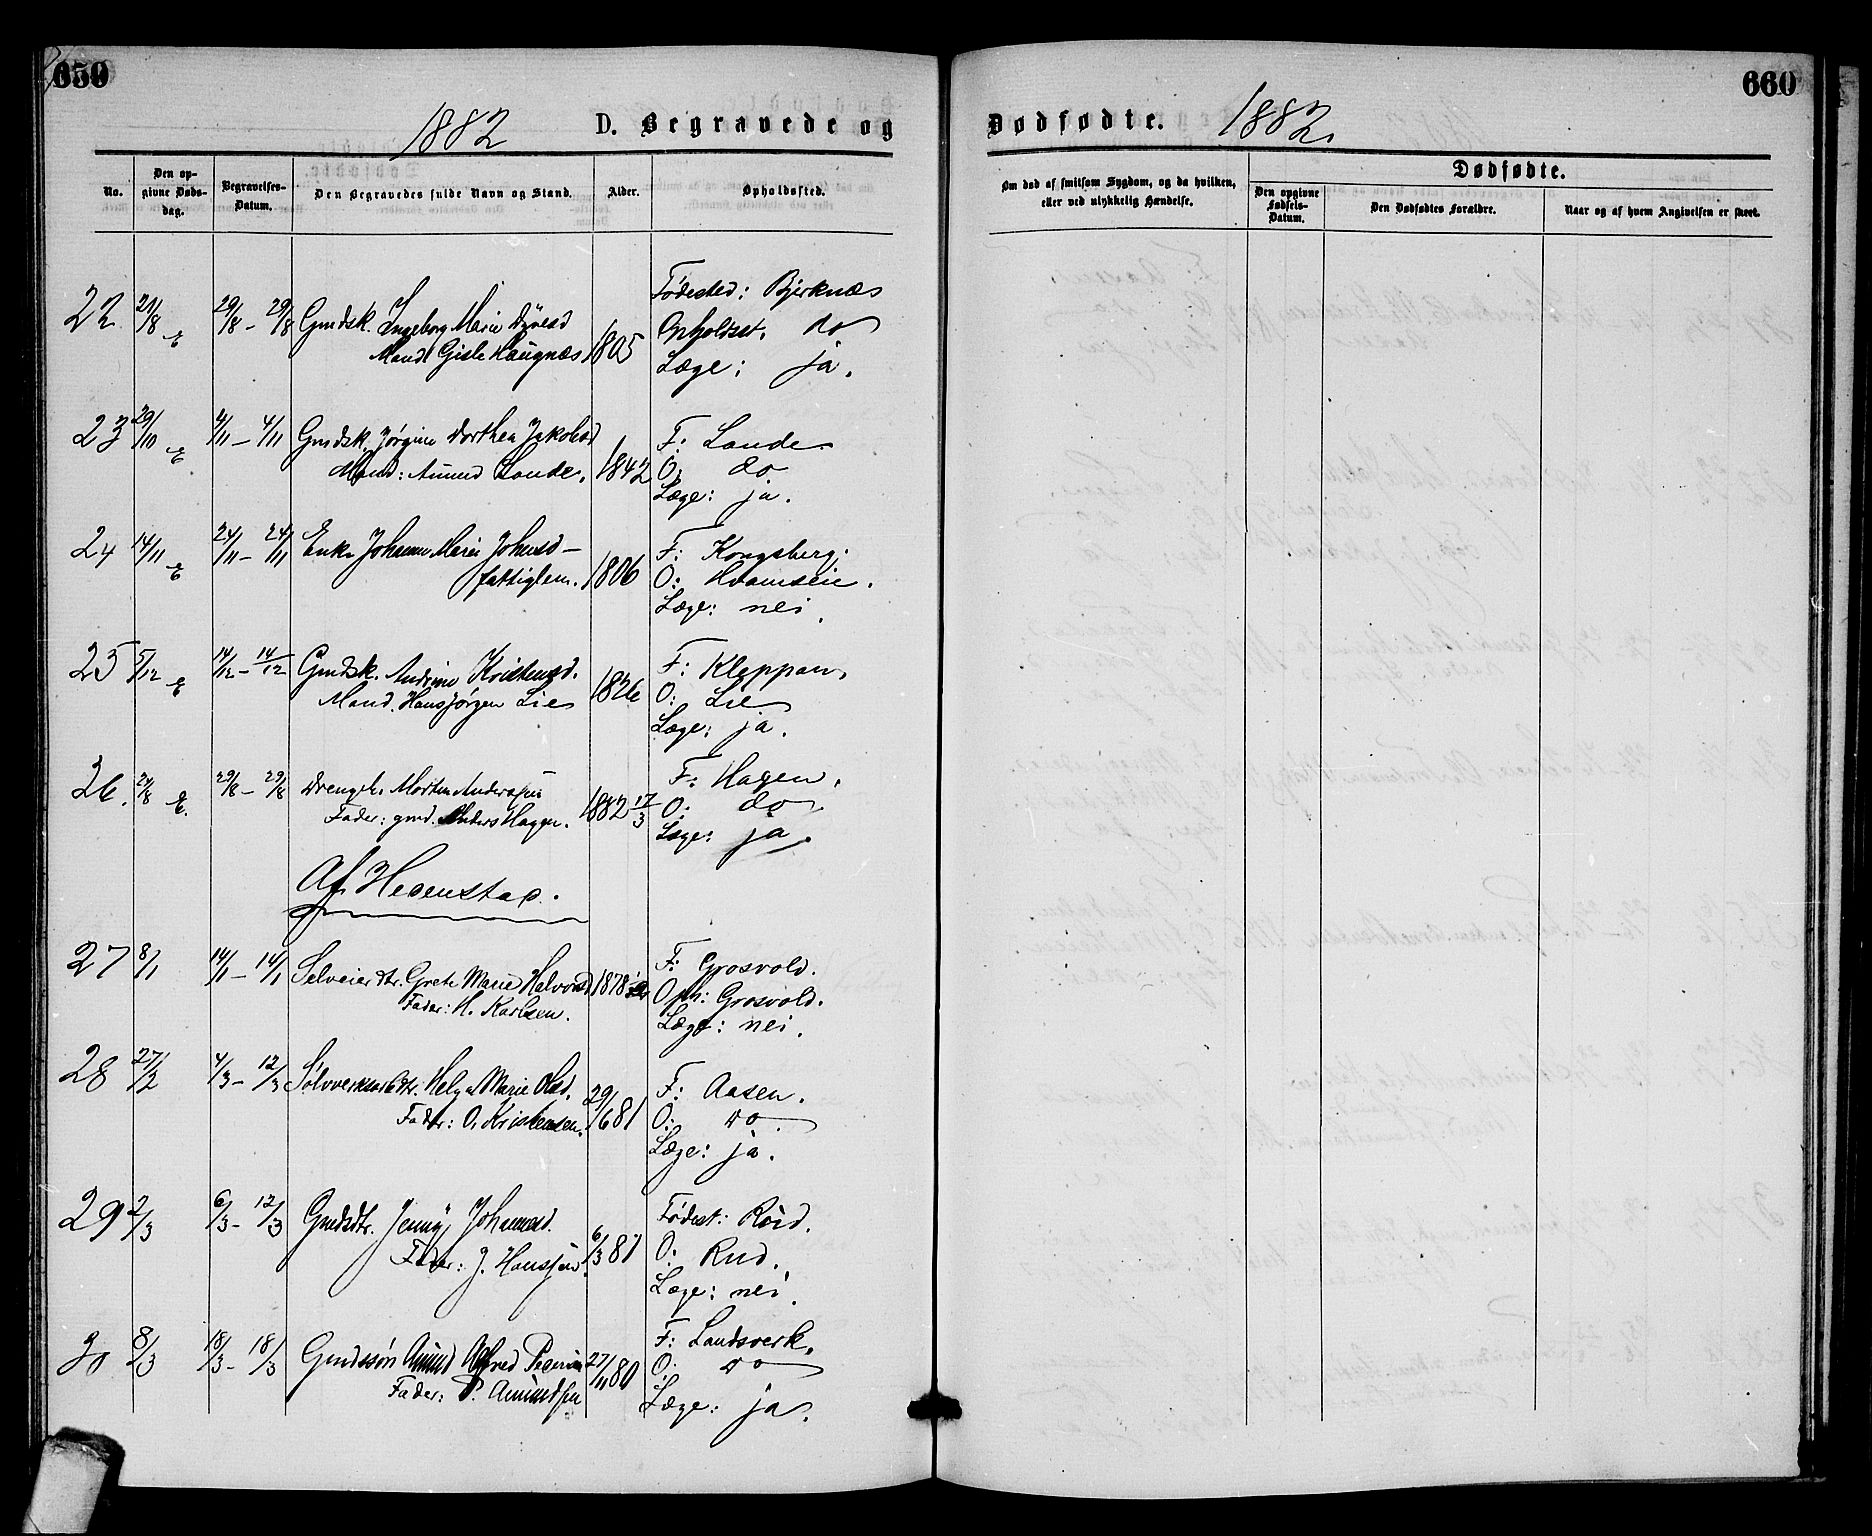 650
1882 D. Begravede og
No.
Den opgivne Dødsdag.
Begravelses-Datum.
Den Begravedes fulde Navn og Stand.
Alder.
Opholdssted.
22 21/8 E 29/8 - 29/8 Gmdsk. Ingeborg Marie 1805 Fødested: Bjerknæs
Mand Gisle Haugnæs Opholdsst. do
Læge: ja.
23 29/10 E 4/11 - 4/11 Gmdsk. Jørgine Dorthea Jakobsd 1842 F: Lande
Mand: Amund Lande. O: do
Læge: ja.
24 14/11 E 24/11 - 24/11 Enke Johanne Marie Johnsd - 1806 F: Kongsberg.
fattiglem. O: Hvamseie.
Læge: nei.
25 5/12 E 14/12 - 14/12 Gmdsk. Andrine Kristensd. 1826 F: Kleppan
Mand. Hansjørgen Lie O: Lie
Læge: ja.
26. 24/8 E. 29/8 - 29/8 Drengeb. Martin Andersen 1882 17/3 F: Hagen.
Fader: gmd. Anders Hagen. O: do
Læge: ja.
Af Hedenstad.
27 8/1 14/1 - 14/1 Selveierdtr. Grete Marie Halvorsd 1878 F: Grosvold.
Fader: H. Karlsen. Oph: Grosvold.
Læge: nei.
28 27/2 4/3 - 12/3 Helga Marie Olsd. 29/6 81 F: Aasen.
Fader: O. Kristensen. O: do
Læge: ja.
29 2/3 6/3 - 12/3 Gmdsdtr. Jenny Johannesd. 6/3 81 Fødest: Rud.
Fader: J. Hansen. O: Rud.
Læge: nei.
30 8/3 18/3 - 18/3 Gmdssøn Amund Alfred 27/11 80 F: Landsverk.
Fader: P. Amundsen O: do
Læge: ja.
660
Dødfødte. 1882.
Om død af smitsom Sygdom, og da hvilken, eller ved ulykkelig Hændelse.
Dødfødte.
Den opgivne Fødsels-Datum.
Den Dødfødtes Forældre.
Naar og af hvem Angivelsen er skeet.